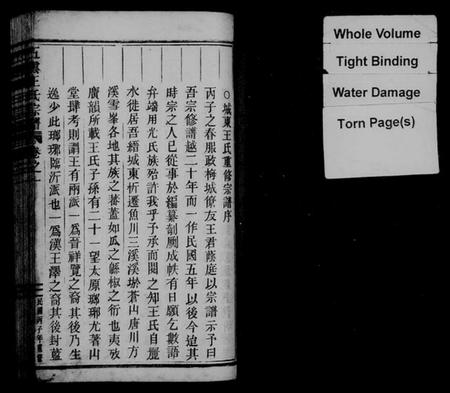 城東王氏重修宗譜序
丙子之春服政梅城僚友王君蔭庭以宗譜示予曰
吾宗修譜越二十年而一作民國五年以後今迨其
時宗之人已從事於編纂剞劂成帙有日願乞數語
弁端用光氏族殆許我乎子承而閱之知王氏自麗
水徙居吾縉城東析遷魚川三溪溪埝蒼山唐川方
溪雪峯各地其族之蕃蓋如瓜之緜椒之衍也夷攷
廣韻所載王氏子孫有二十一望太原瑯琊尤著山
堂肆考則謂王有兩派一為晉祥覽之裔其後乃生
逸少此瑯琊臨沂派也一為漢王澤之裔其後封藍
王氏宗譜
卷之一
民國丙子年重修
Whole Volume
Tight Binding
Water Damage
Torn Page(s)